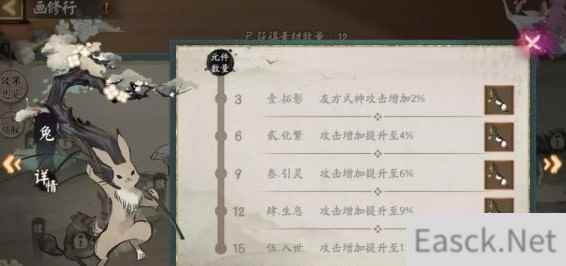 画修行
已获得素材数量：12
元件
数量
3 壹.拓影 友方式神攻击增加2%
6 贰.化繁 攻击增加提升至4%
9 叁.引灵 攻击增加提升至6%
12 肆.生息 攻击增加提升至9%
15 伍.入世 攻击增加提升至1
兔
详情
Easck.Net